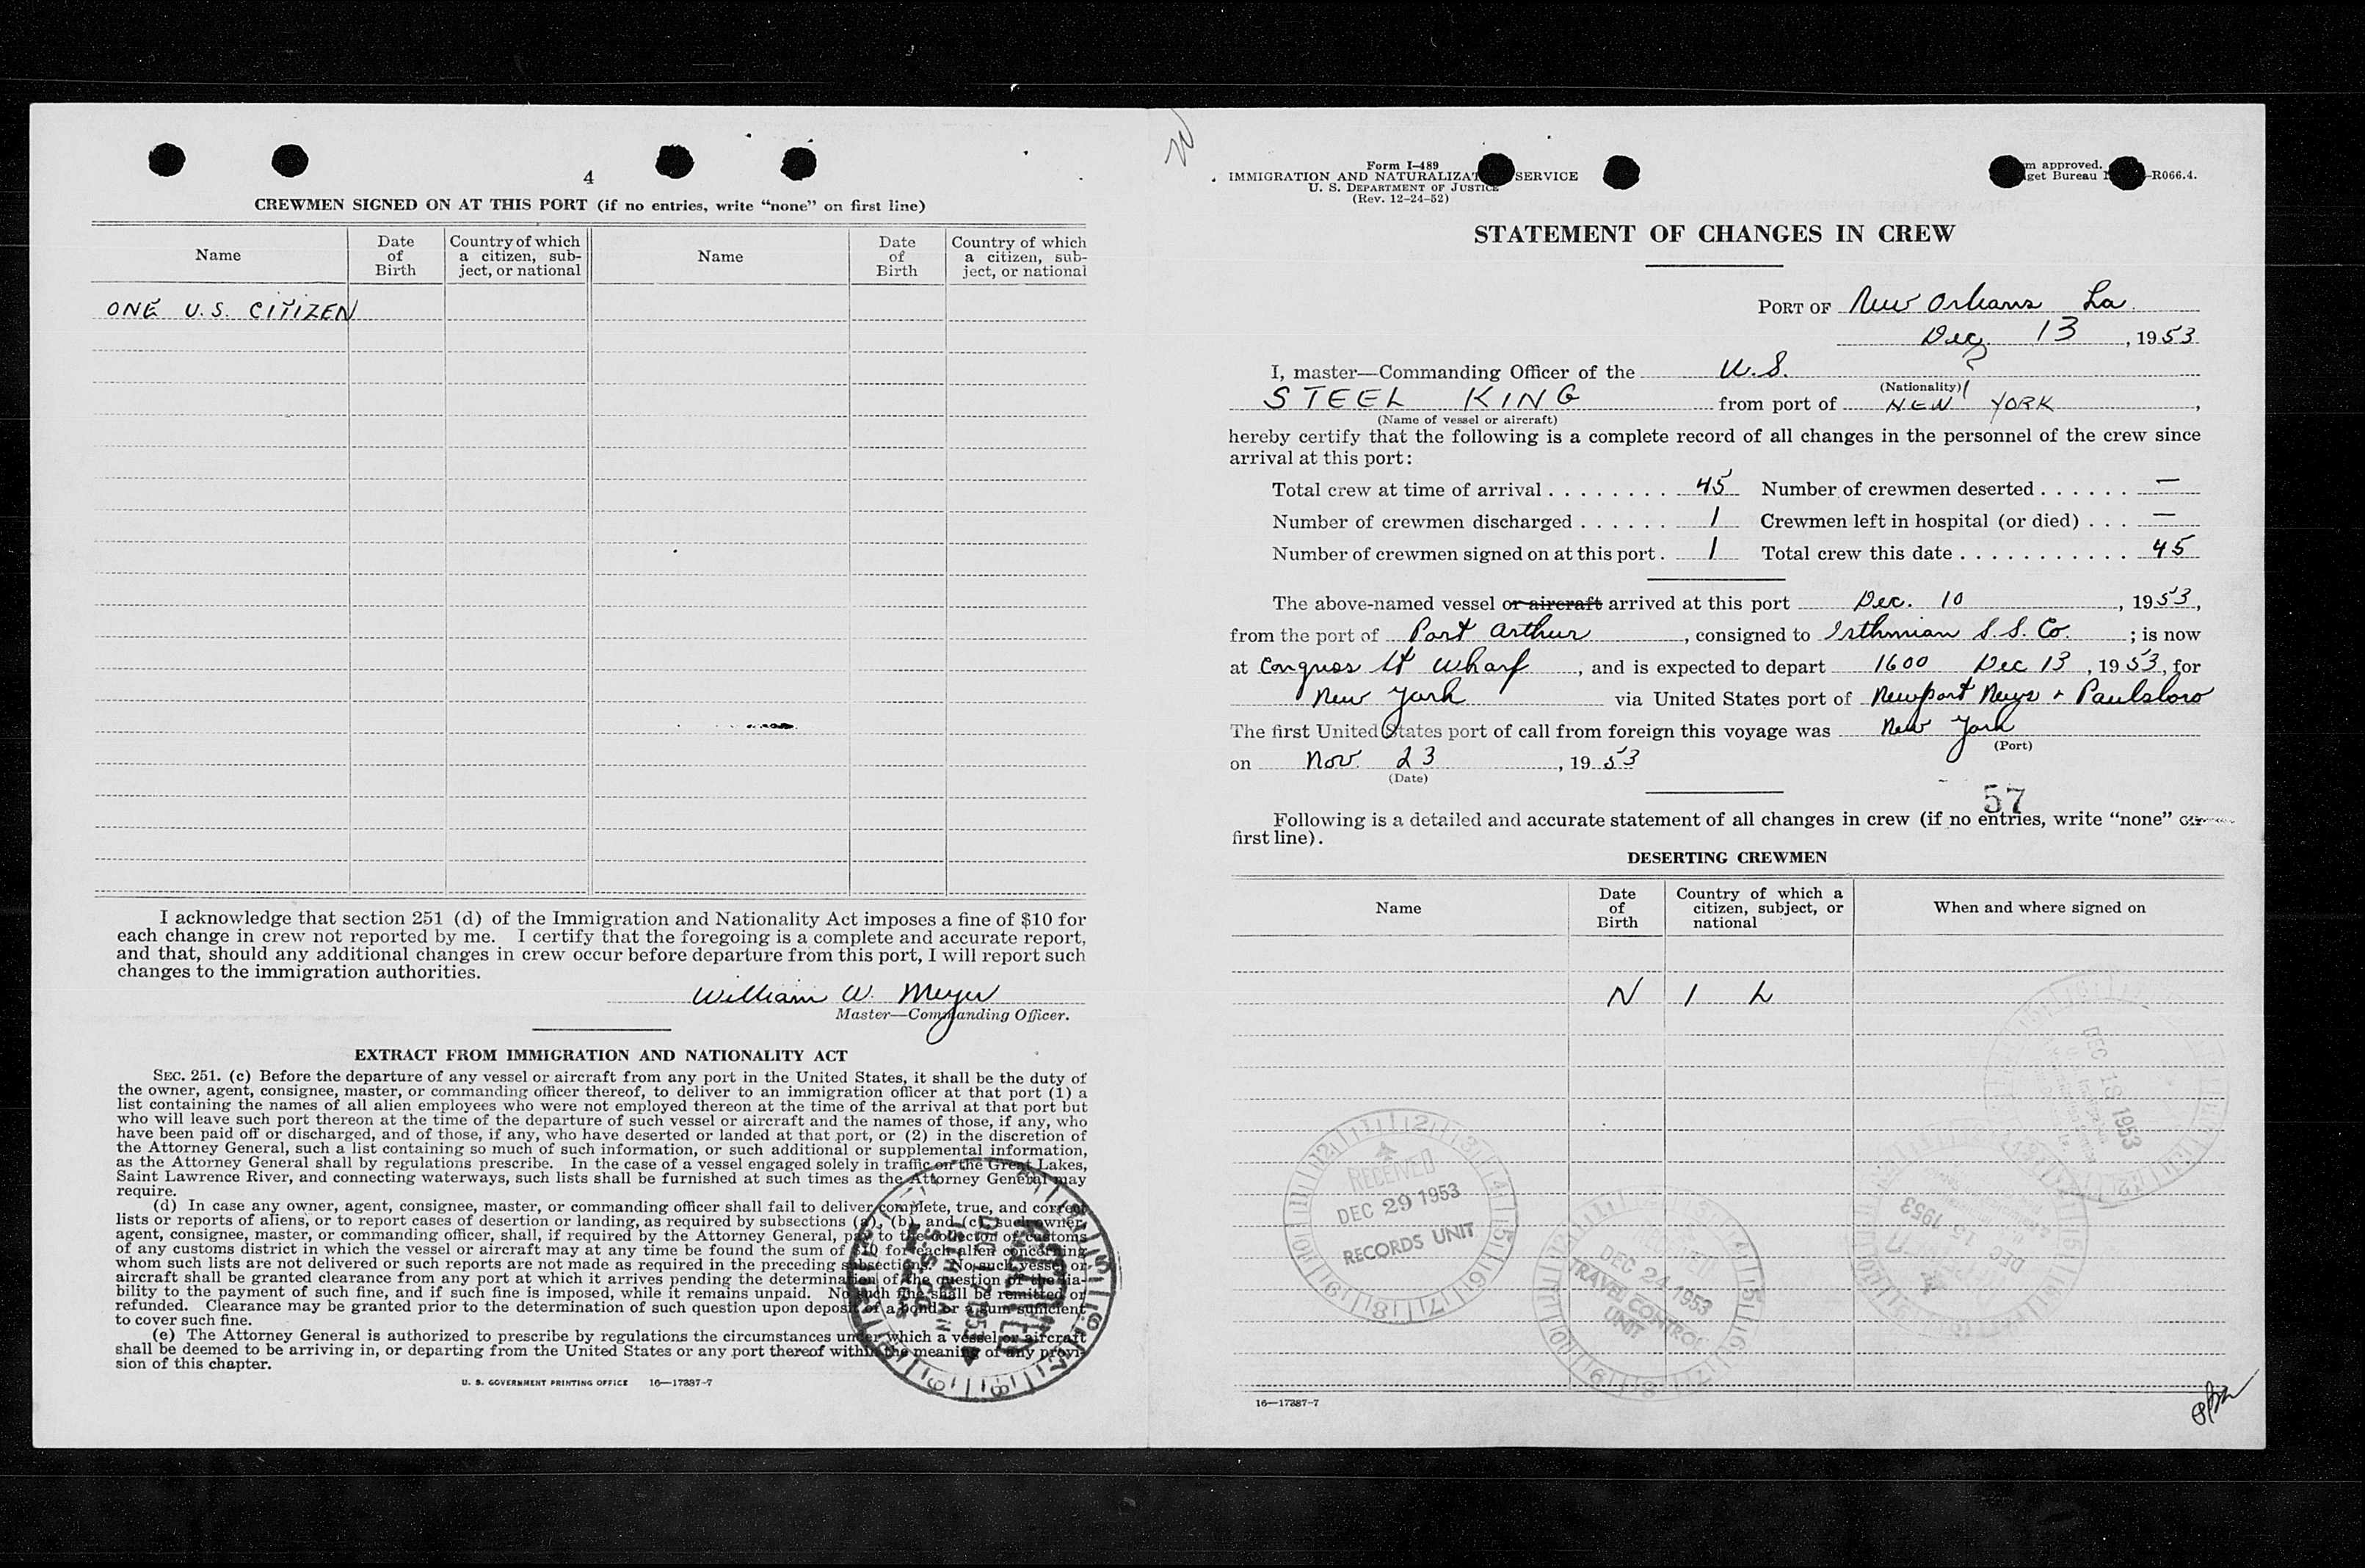 4
CREWMEN SIGNED ON AT THIS PORT (if no entries, write “none” on first line)
Name Date of Birth Country of which a citizen, subject, or national Name Date of Birth Country of which a citizen, subject, or national
ONE U.S. CITIZEN
I acknowledge that section 251 (d) of the Immigration and Nationality Act imposes a fine of $10 for
each change in crew not reported by me. I certify that the foregoing is a complete and accurate report,
and that, should any additional changes in crew occur before departure from this port, I will report such
changes to the immigration authorities.
William W. Meyer
Master—Commanding Officer.
EXTRACT FROM IMMIGRATION AND NATIONALITY ACT
SEC. 251. (c) Before the departure of any vessel or aircraft from any port in the United States, it shall be the duty of
the owner, agent, consignee, master, or commanding officer thereof, to deliver to an immigration officer at that port (1) a
list containing the names of all alien employees who were not employed thereon at the time of the arrival at that port but
who will leave such port thereon at the time of the departure of such vessel or aircraft and the names of those, if any, who
have been paid off or discharged, and of those, if any, who have deserted or landed at that port, or (2) in the discretion of
the Attorney General, such a list containing so much of such information, or such additional or supplemental information,
as the Attorney General shall by regulations prescribe. In the case of a vessel engaged solely in traffic on the Great Lakes,
Saint Lawrence River, and connecting waterways, such lists shall be furnished at such times as the Attorney General may
require.
(d) In case any owner, agent, consignee, master, or commanding officer shall fail to deliver complete, true, and correct
lists or reports of aliens, or to report cases of desertion or landing, as required by subsections (a), (b), and (c), such owner,
agent, consignee, master, or commanding officer, shall, if required by the Attorney General, pay to the collector of customs
of any customs district in which the vessel or aircraft may at any time be found the sum of $10 for each alien concerning
whom such lists are not delivered or such reports are not made as required in the preceding subsections. No such vessel or
aircraft shall be granted clearance from any port at which it arrives pending the determination of the question of the lia-
bility to the payment of such fine, and if such fine is imposed, while it remains unpaid. No such fine shall be remitted or
refunded. Clearance may be granted prior to the determination of such question upon deposit of a bond or a sum sufficient
to cover such fine.
(e) The Attorney General is authorized to prescribe by regulations the circumstances under which a vessel or aircraft
shall be deemed to be arriving in, or departing from the United States or any port thereof within the meaning of any provi-
sion of this chapter.
U. S. GOVERNMENT PRINTING OFFICE 16—17387-7
Form I-489
IMMIGRATION AND NATURALIZAT SERVICE
U. S. DEPARTMENT OF JUSTICE
(Rev. 12-24-52)
m approved.
get Bureau -R066.4.
STATEMENT OF CHANGES IN CREW
PORT OF New Orleans La.
Dec. 13, 1953
I, master—Commanding Officer of the U.S.
(Nationality)
STEEL KING from port of NEW YORK,
(Name of vessel or aircraft)
hereby certify that the following is a complete record of all changes in the personnel of the crew since
arrival at this port:
Total crew at time of arrival 45 Number of crewmen deserted —
Number of crewmen discharged 1 Crewmen left in hospital (or died) —
Number of crewmen signed on at this port 1 Total crew this date 45
The above-named vessel or aircraft arrived at this port Dec. 10, 1953,
from the port of Port Arthur, consigned to Isthmian S.S. Co.; is now
at Congress St Wharf, and is expected to depart 1600 Dec 13, 1953, for
New York via United States port of Newport News + Paulsboro
The first United States port of call from foreign this voyage was New York
(Port)
on Nov. 23, 1953
(Date)
57
Following is a detailed and accurate statement of all changes in crew (if no entries, write “none” on
first line).
DESERTING CREWMEN
Name Date of Birth Country of which a citizen, subject, or national When and where signed on
N I L
DEC 18 1953
RECEIVED
DEC 29 1953
RECORDS UNIT
DEC 24 1953
TRAVEL CONTROL
UNIT
DEC 15 1953
16—17387-7